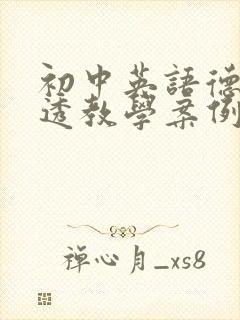 初中英語德
透教學案例
禪心月_xs8